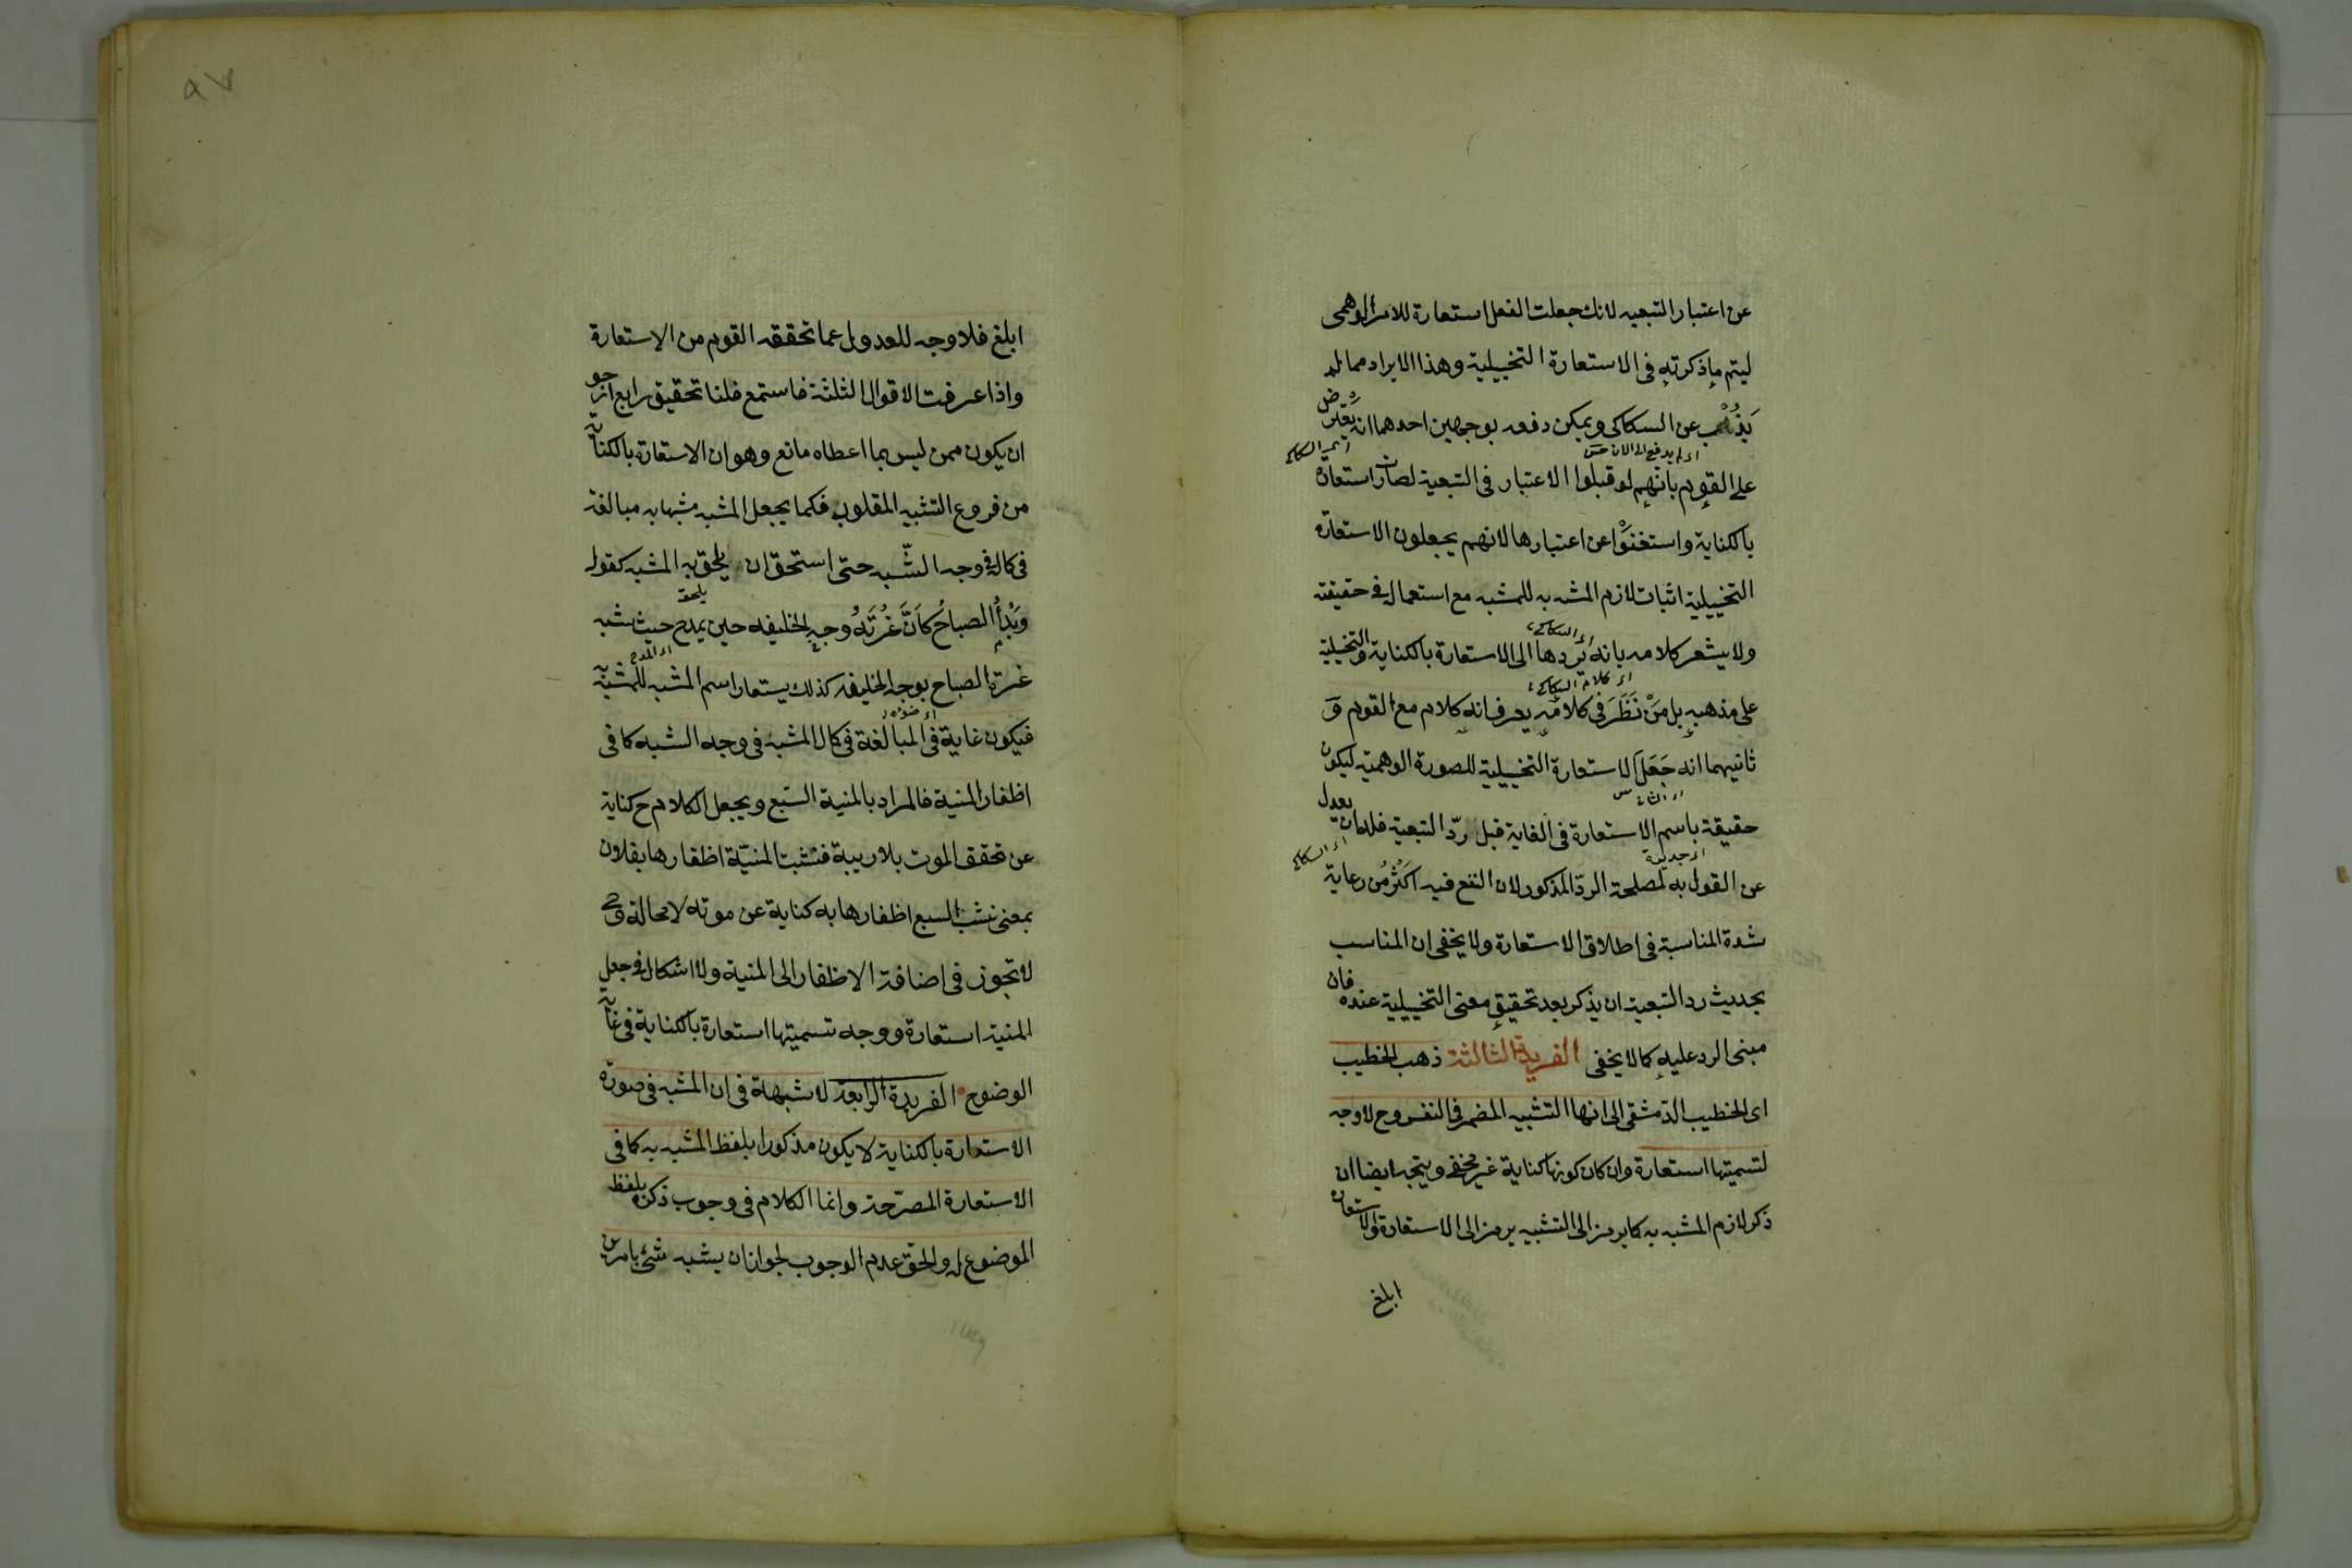 عن اعتبار التبعيه لانك جعلت الفعل استعارة للامر الوهمى
ليتم ما ذكرته فى الاستعارة التخييلية وهذا الايراد مما لم
يذهب عن السكاكى ويمكن دفعه بوجهين احدهما انه يعترض
على القوم بانهم لو قبلوا الاعتبار فى التبعية لصارت استعارة
بالكناية واستغنوا عن اعتبارها لانهم يجعلون الاستعارة
التخييلية اثبات لازم المشبه به للمشبه مع استعماله فى حقيقته
اى السكاكى
ولا يشعر كلامه بانه يردها الى الاستعارة بالكناية والتخيلية
اى كلام السكاكى
على مذهبه بل من نظر فى كلامه يعرف انه كلام مع القوم و
ثانيهما انه جعل الاستعارة التخييلية للصورة الوهمية ليكون
حقيقة باسم الاستعارة فى الغاية قبل ردّ التبعية فله ان يعدل
اى السكاكى
عن القول به لمصلحة الردّ المذكور لان النفع فيه اكثر من رعاية
شدة المناسبة فى اطلاق الاستعارة ولا يخفى ان المناسب
بحديث رد التبعية ان يذكر بعد تحقيق معنى التخييلية عنده فان
مبنى الرد عليه كما لا يخفى الفريدة الثالثة ذهب الخطيب
اى الخطيب الدمشقى الى انها التشبيه المضمر فى النفس وح لا وجه
لتسميتها استعارة وان كان كونها كناية غير مخفى ويتجه ايضا ان
ذكر لازم المشبه به كما يرمز الى التشبيه يرمز الى الاستعارة والاستعارة
ابلغ
٩٧
ابلغ فلا وجه للعدول عما تحققه القوم من الاستعارة
واذا عرفت الاقوال الثلثة فاستمع فلنا تحقيق رابع ارجو
ان يكون ممن ليس بما اعطاه مانع وهو ان الاستعارة بالكناية
من فروع التشبيه المقلوب فكما يجعل المشبه مشبها به مبالغة
فى كماله فى وجه الشّبه حتى استحق ان يلحق به المشبه كقوله
يلحق
وبدا الصباح كأنّ غرته وجه الخليفه حين يمدح حيث شبه
غرة الصباح بوجه الخليفه كذلك يستعار اسم المشبه للمشبه به
فيكون غاية فى المبالغة فى كمال المشبه فى وجه الشبه كما فى
اظفار المنية فالمراد بالمنية السّبع ويجعل الكلام ح كناية
عن تحقق الموت بلا ريبة فنشبت المنيّة اظفارها بفلان
بمعنى نشب السبع اظفارها به كناية عن موته لا محالة وح
لا تجوز فى اضافة الاظفار الى المنية ولا اشكال فى جعل
المنية استعارة ووجه تسميتها استعارة بالكناية فى غاية
الوضوح الفريدة الرابعة لا شبهة فى ان المشبه فى صورة
الاستعارة بالكناية لا يكون مذكورا بلفظ المشبه به كما فى
الاستعارة المصرّحة وانما الكلام فى وجوب ذكره بلفظ
الموضوع له والحق عدم الوجوب لجواز ان يشبه شئ بامرين